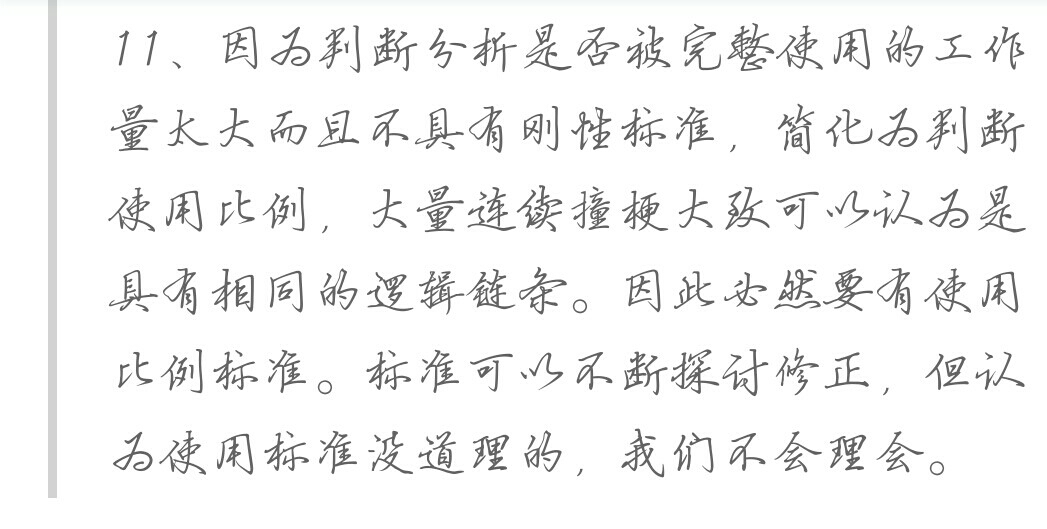 11、因为判断分析是否被完整使用的工作
量太大而且不具有刚性标准，简化为判断
使用比例，大量连续撞梗大致可以认为是
具有相同的逻辑链条。因此必然要有使用
比例标准。标准可以不断探讨修正，但认
为使用标准没道理的，我们不会理会。